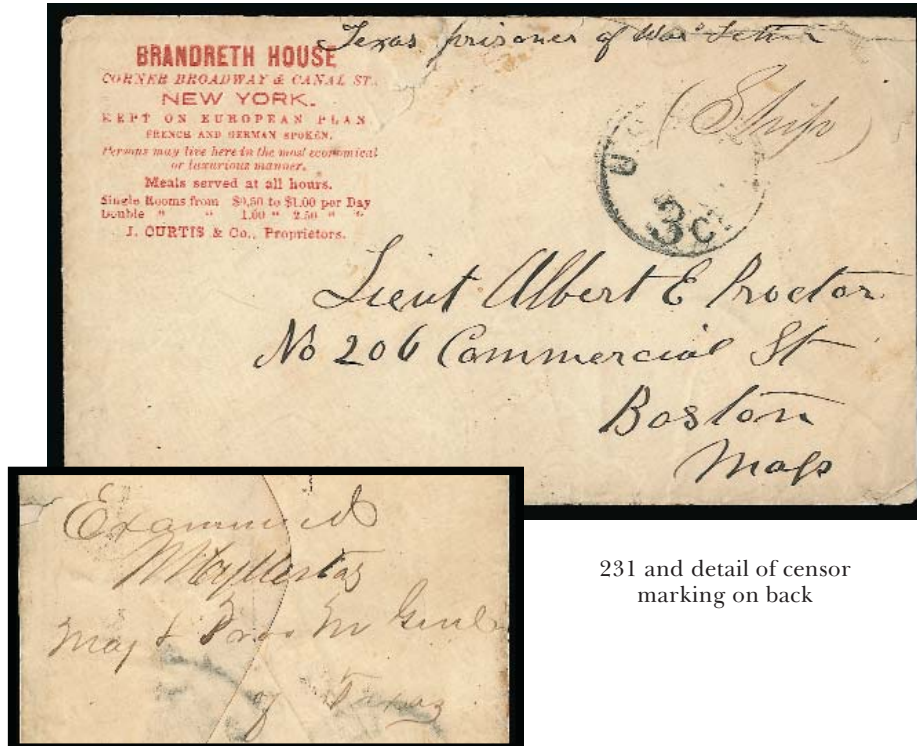 Texas prisoner of War Letter
BRANDRETH HOUSE
CORNER BROADWAY & CANAL ST.
NEW YORK.
KEPT ON EUROPEAN PLAN
FRENCH AND GERMAN SPOKEN.
Persons may live here in the most economical
or luxurious manner.
Meals served at all hours.
Single Rooms from $0,50 to $1.00 per Day
Double " " 1.00 " 2.50 " "
J. CURTIS & Co., Proprietors.
(Ship)
U
3c
Lieut Albert E Proctor
No 206 Commercial St
Boston
Mass
Examined
Maj & Prov
of Texas
231 and detail of censor
marking on back